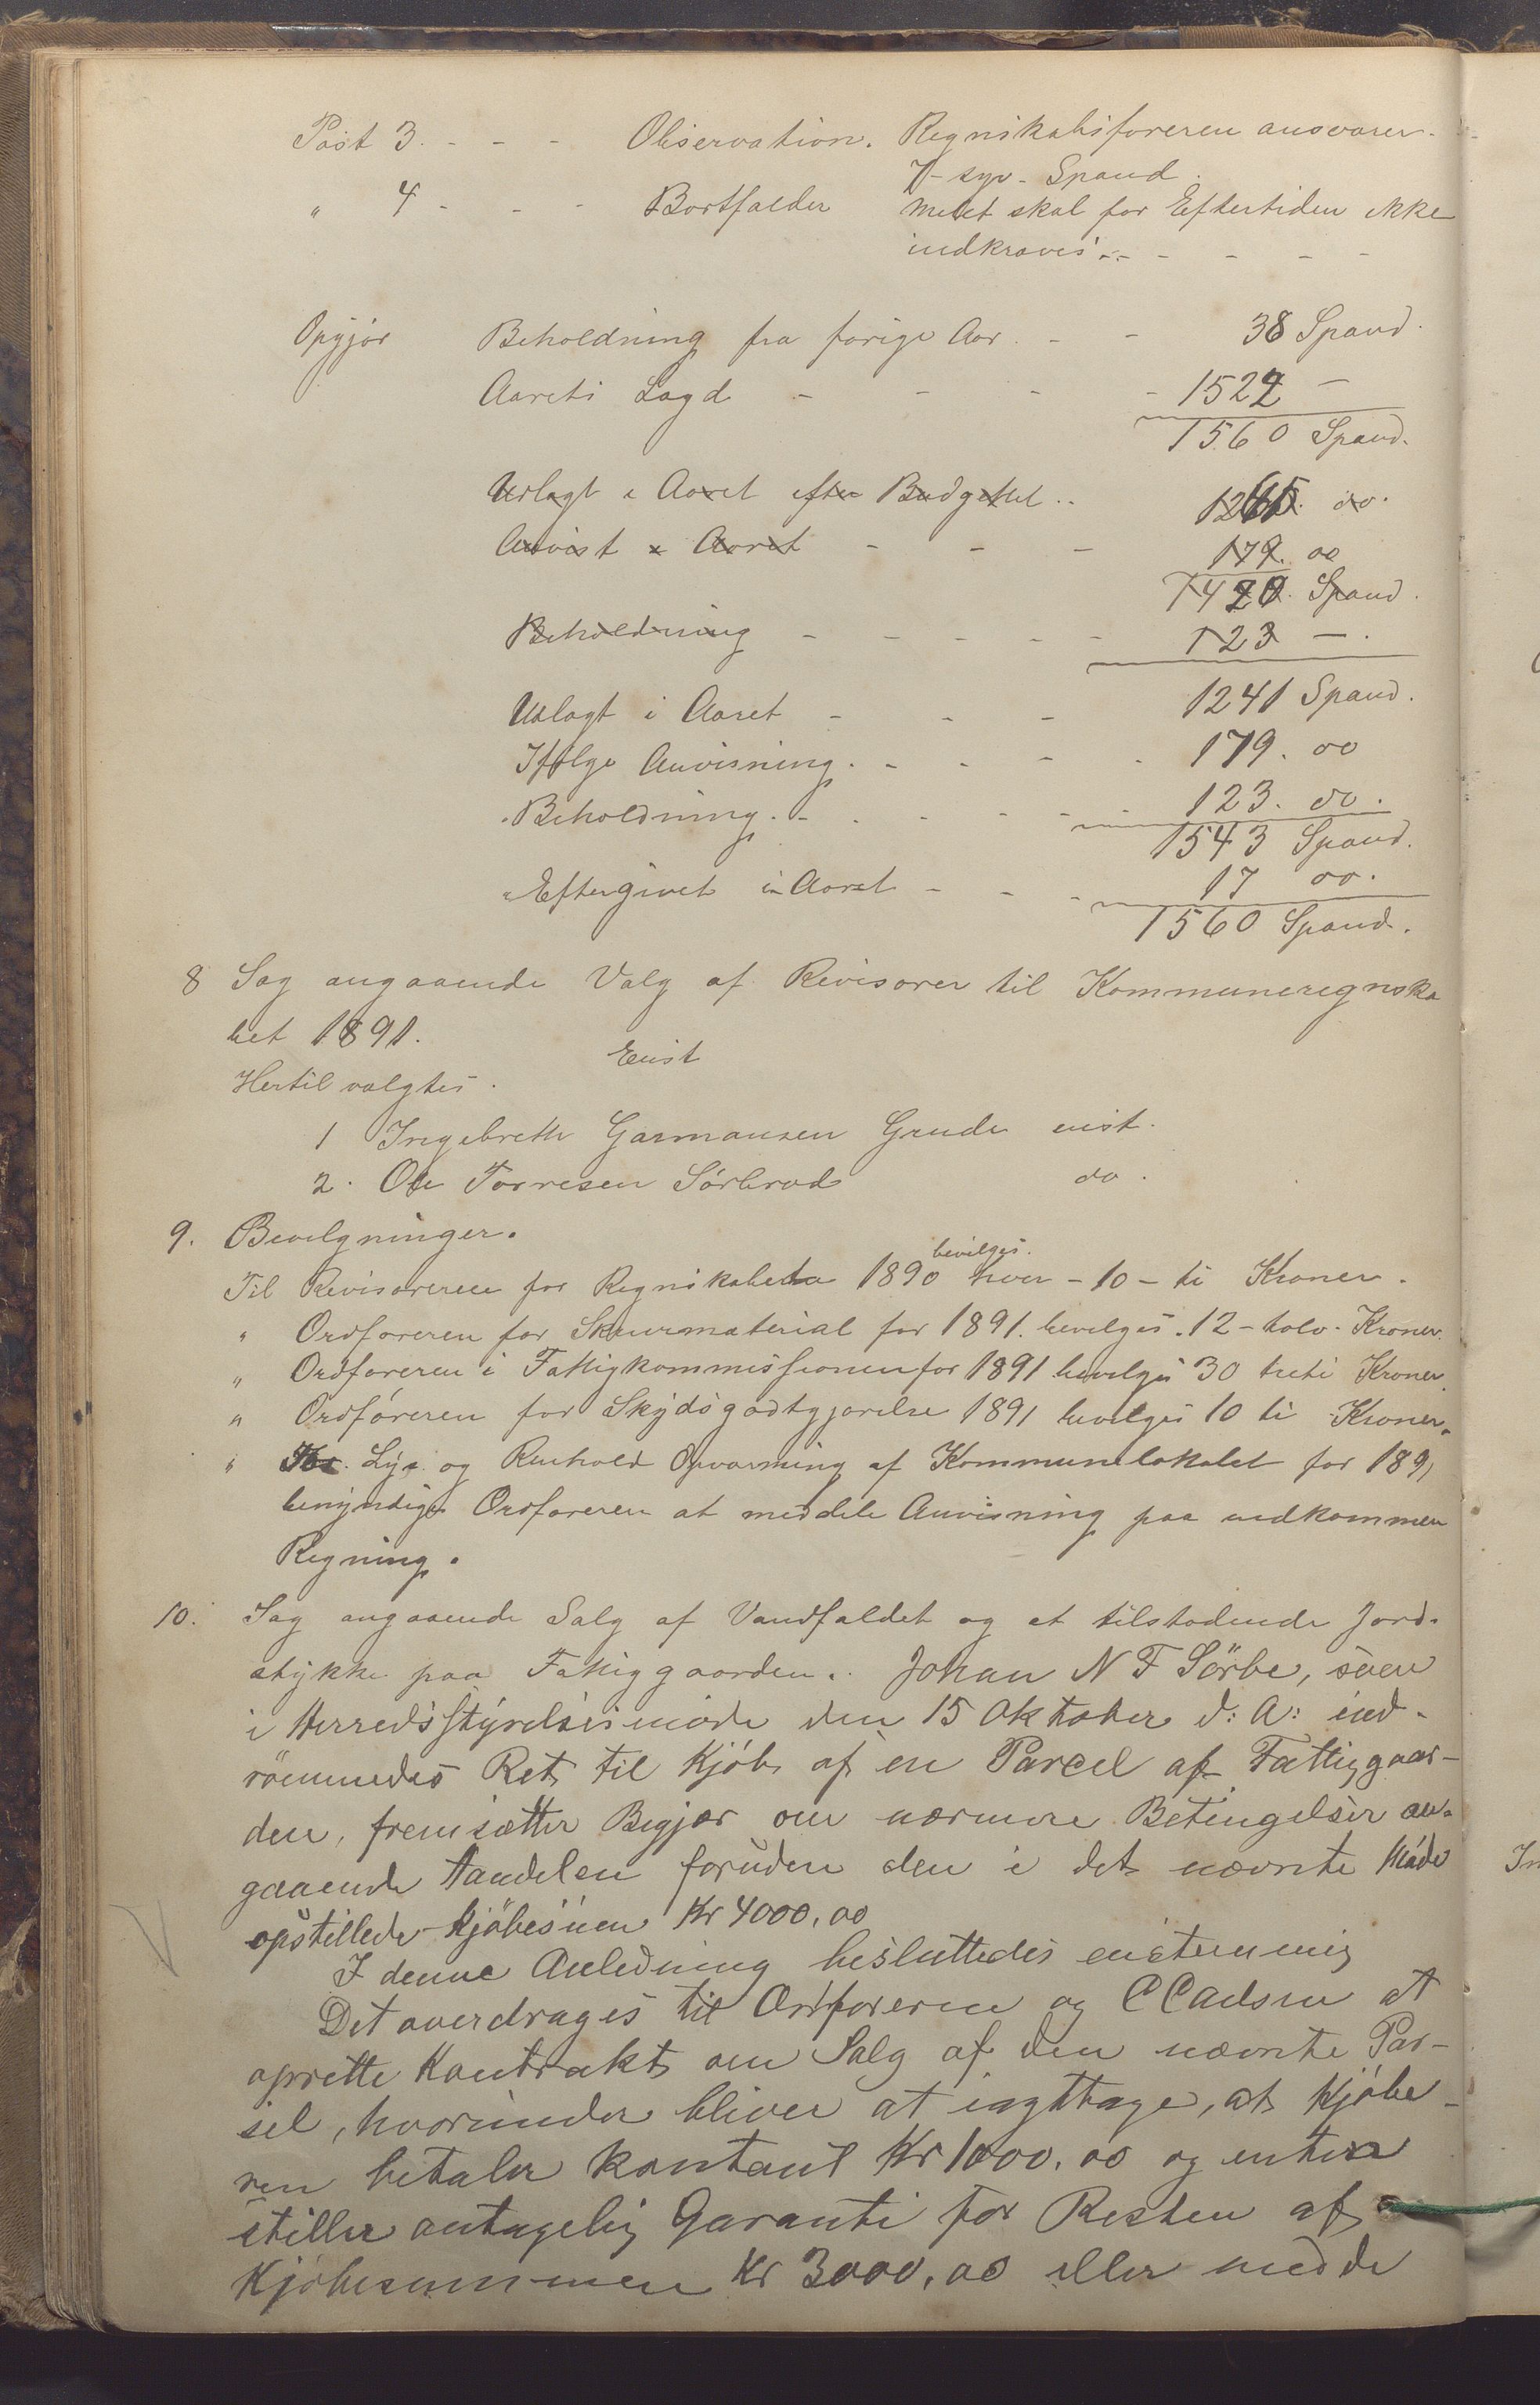 Post 3. - - - Observation. Regnskabsføreren ansvarer
7 - syv - Spand.
" 4 - - - Bortfalder melet skal for Eftertiden ikke
indkræves. - - - - -
Opgjør Beholdning fra forige Aar. - - 38 Spand.
Aarets Lagd - - - - 1522 —
1560 Spand.
Udlagt i Aaret efter Budgettet .. 1265. do.
Anvist i Aaret - - - 179. do
1420. Spand.
Beholdning - - - - - 123 —.
Udlagt i Aaret - - - 1241 Spand.
Ifølge Anvisning. - - - - 179. do
Beholdning. - - - - - 123. do.
1543 Spand.
Eftergivet i Aaret - - - 17 do.
1560 Spand.
8 Sag angaaende Valg af Revisorer til Kommuneregnska
bet 1891.
Enst
Hertil valgtes.
1 Ingebreth Garmansen Grude enst.
2. Ole Torresen Sörbrød do.
9. Bevilgninger.
bevilges.
Til Revisorerne for Regnskabet 1890 hver - 10 - ti Kroner.
" Ordføreren for Skrivmaterial for 1891. bevilges. 12 - tolv - Kroner.
" Ordføreren i Fattigkommissionen for 1891 bevilges 30 treti Kroner.
" Ordføreren for Skydsgodtgjørelse 1891 bevilges 10 ti Kroner.
" Lys og Renhold Opvarming af Kommunelokalet for 1891
bemyndiges Ordføreren at meddele Anvisning paa indkommen
Regning.
10. Sag angaaende Salg af Vandfaldet og et tilstødende Jord-
stykke paa Fattiggaarden. Johan N F Sörbø, som
i Herredsstyrelsesmøde den 15 Oktober d: A: ind-
römmedes Ret til Kjöb af en Parcel af Fattiggaar-
den, fremsætter Begjær om nærmere Betingelser an-
gaaende Handelen foruden den i det nævnte Möde
opstillede Kjöbesum Kr 4000,00
I denne Anledning besluttedes enstemmig
Det overdrages til Ordføreren og C Carlsen at
oprette Kontrakt om Salg af den nævnte Par-
sel, hvorunder bliver at iagttage, at Kjöbe-
ren betaler kontant Kr 1000,00 og enten
stiller antagelig Garanti for Resten af
Kjöbesummen Kr 3000,00 eller medde